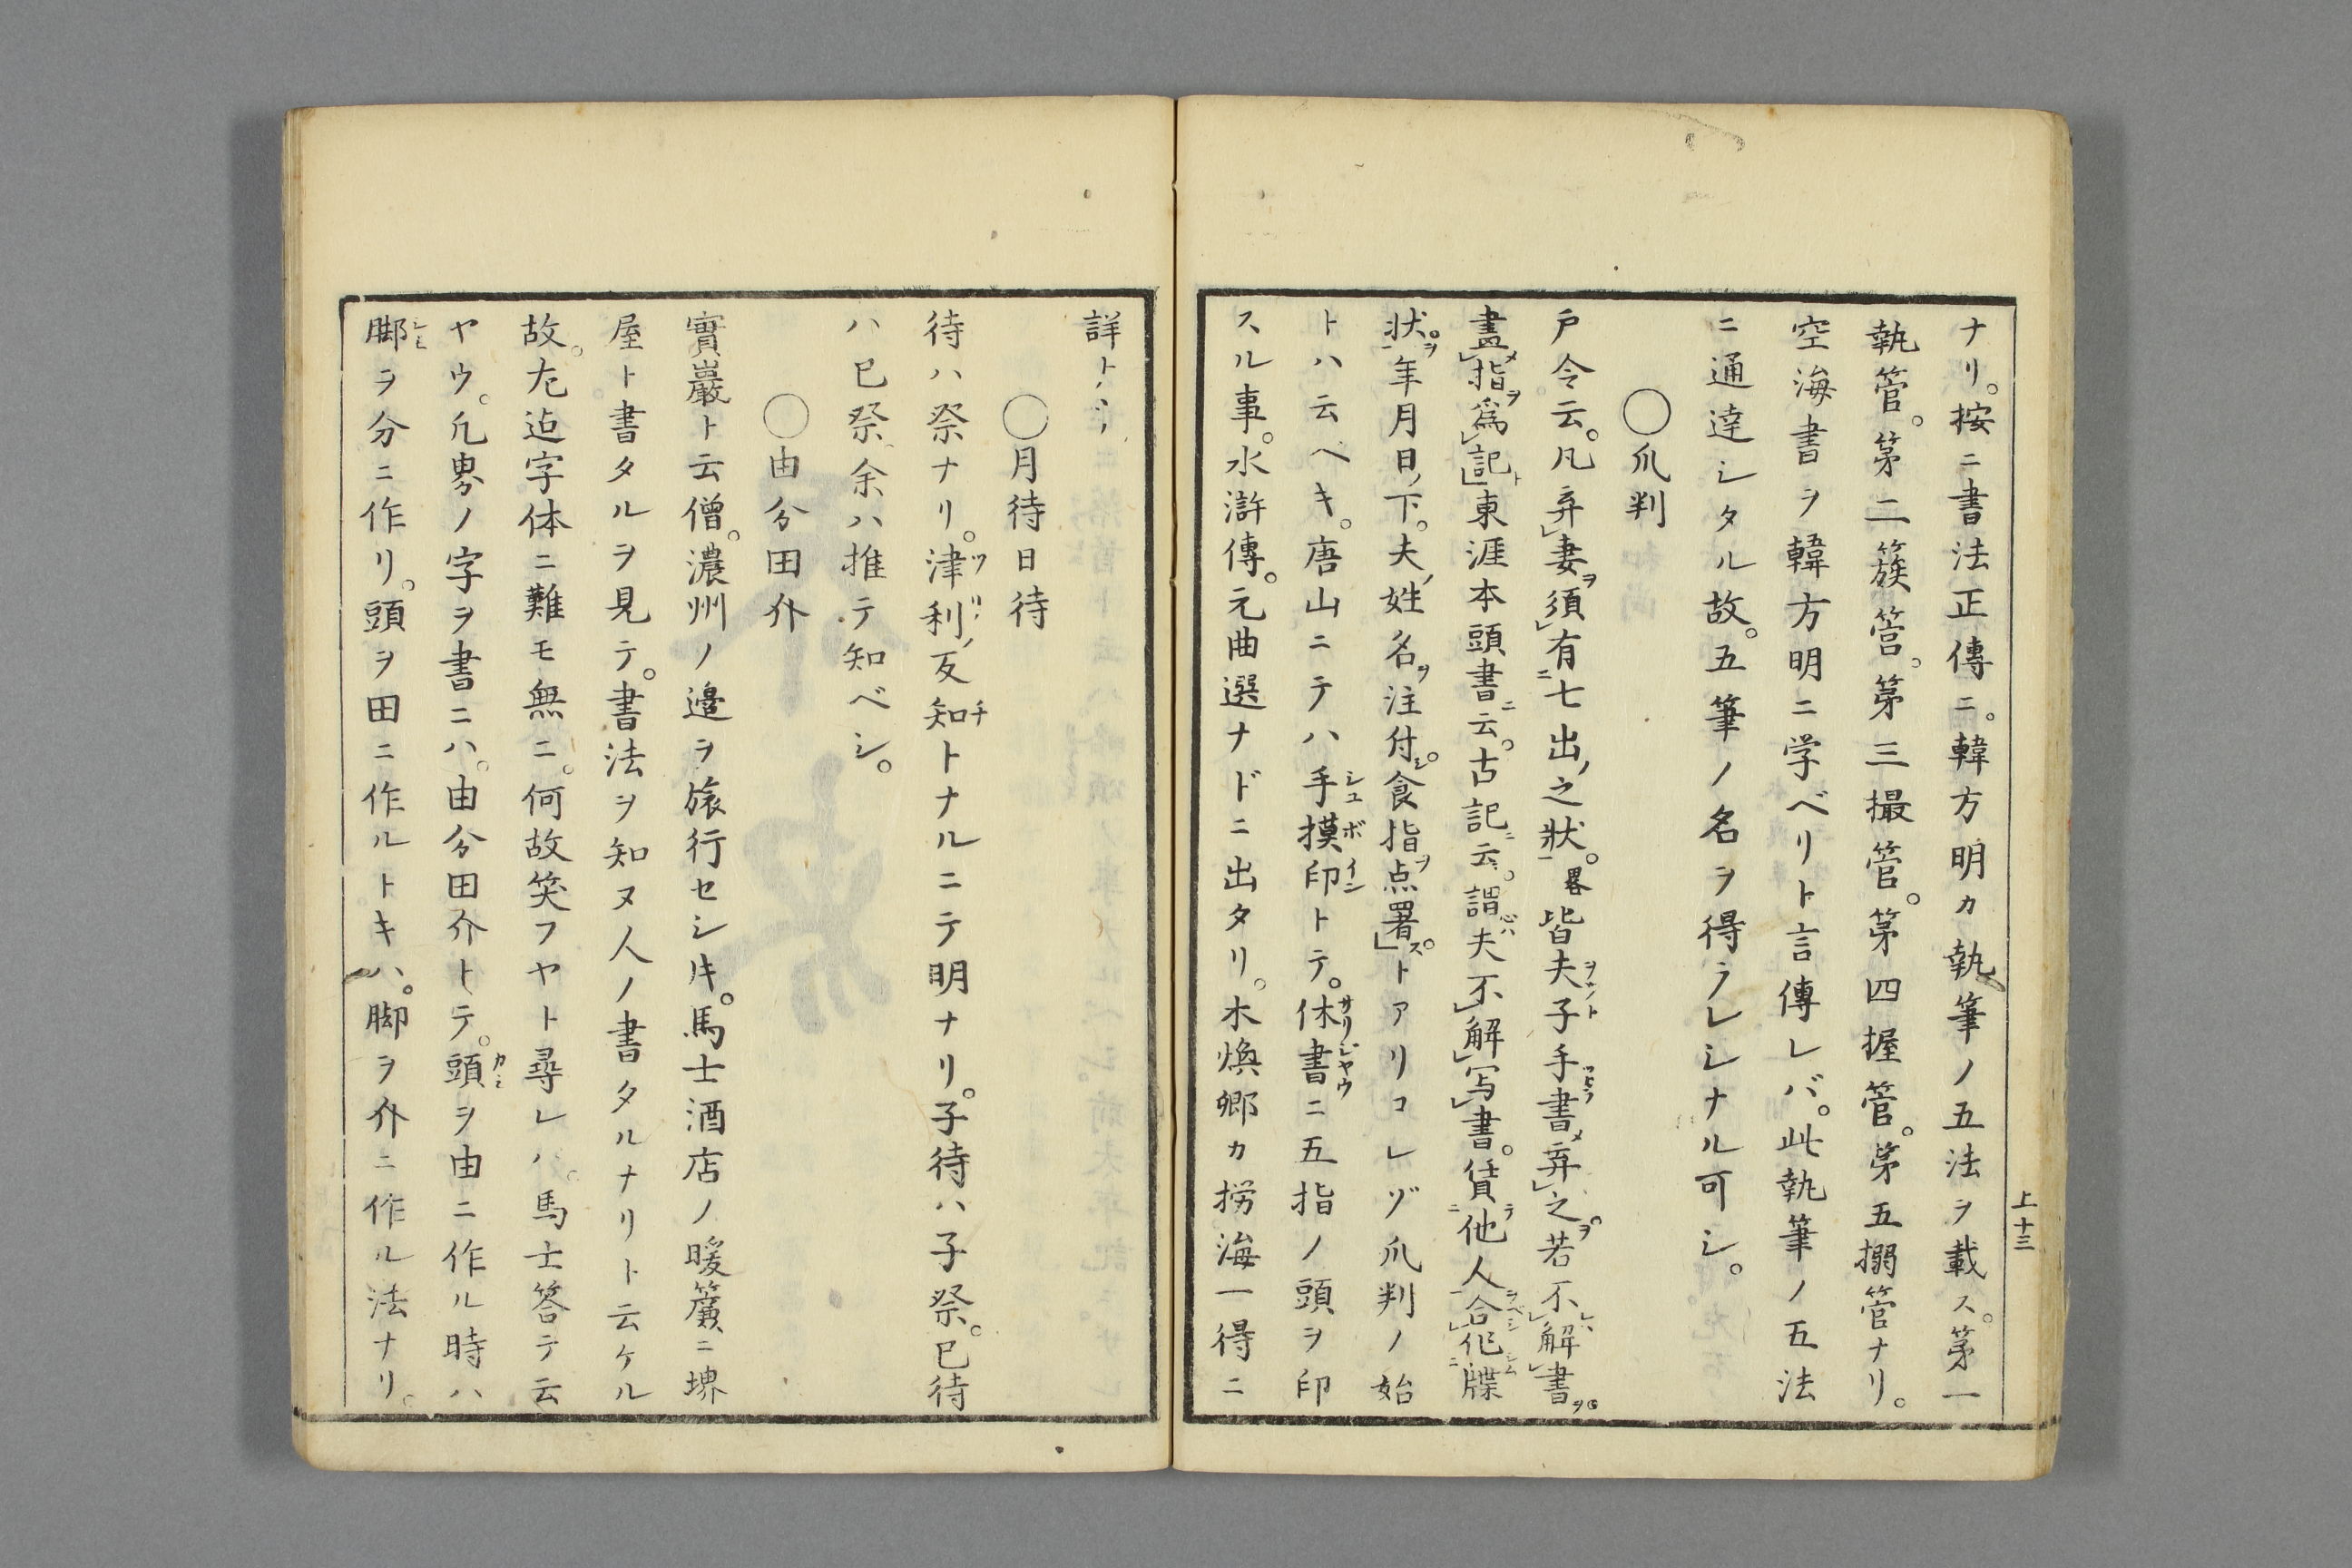 ナリ。按ニ書法正傳ニ。韓方明カ執筆ノ五法ヲ載ス。第一
執管。第二簇管。第三撮管。第四握管。第五搦管ナリ。
空海書ヲ韓方明ニ学ベリト言傳レバ。此執筆ノ五法
ニ通達シタル故。五筆ノ名ヲ得ラレシナル可シ。
〇爪判
戸令云。凡弃妻須有七出之状。畧皆夫子手書弃之若不解書
畫指爲記東涯本頭書云。古記云。謂夫不解写書。賃他人合作牒
状。年月日下。夫姓名注付。食指点署トアリコレゾ爪判ノ始
トハ云ベキ。唐山ニテハ手摸印トテ。休書ニ五指ノ頭ヲ印
スル事。水滸傳。元曲選ナドニ出タリ。木煥卿カ撈海一得ニ
上十三
詳
〇月待日待
待ハ祭ナリ。津利ノ反知トナルニテ明ナリ。子待ハ子祭。巳待
ハ巳祭余ハ推テ知ベシ。
〇由分田介
實巖ト云僧。濃州ノ邉ヲ旅行セシ𪜈。馬士酒店ノ暖簾ニ堺
屋ト書タルヲ見テ。書法ヲ知ヌ人ノ書タルナリト云ケル
故。左迠字体ニ難モ無ニ。何故笑フヤト尋レハ。馬士答テ云
ヤウ。凡堺ノ字ヲ書ニハ。由分田介トテ。頭ヲ由ニ作ル時ハ
脚ヲ分ニ作リ。頭ヲ田ニ作ルトキハ。脚ヲ介ニ作ル法ナリ。